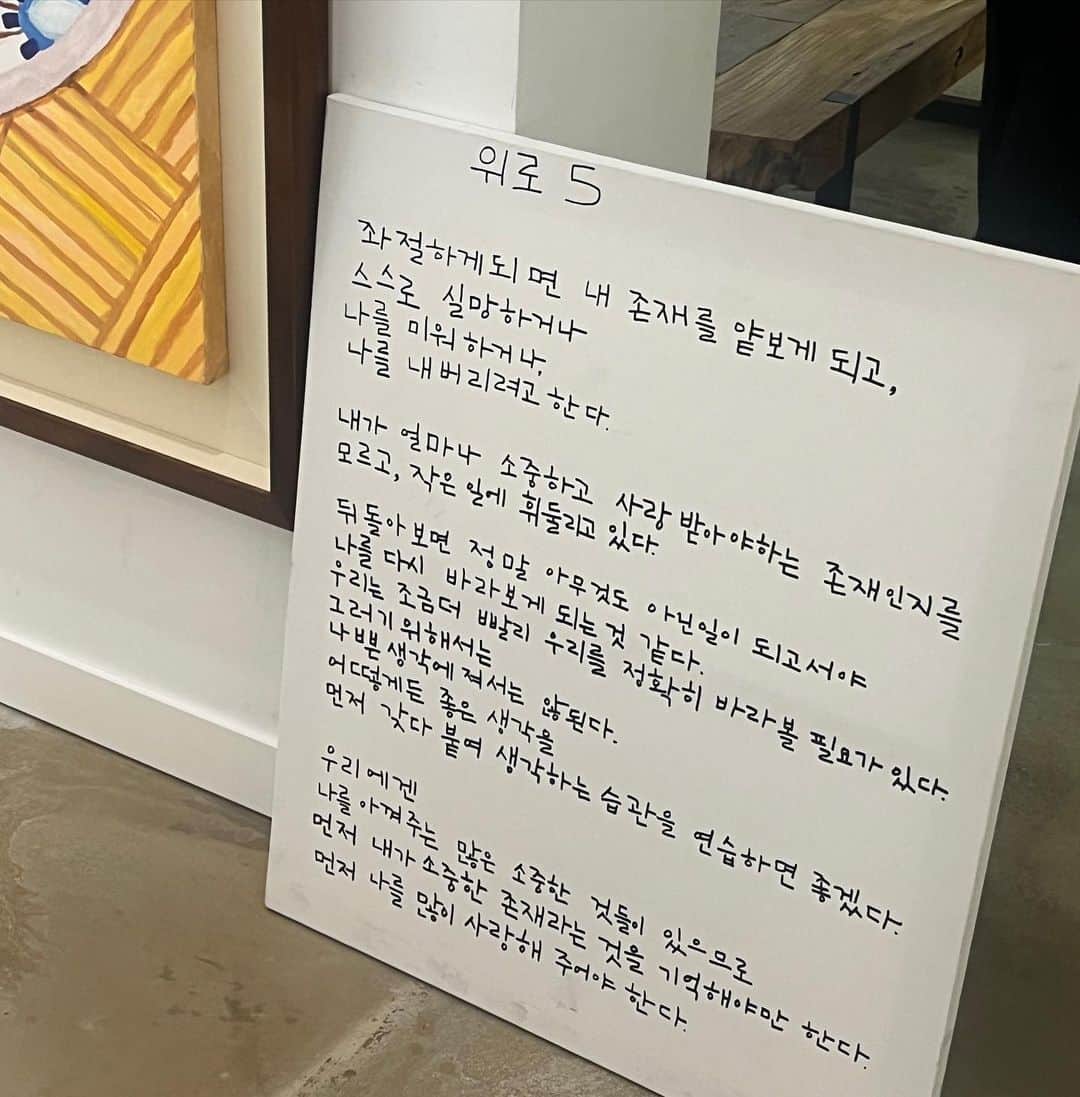 위로 5
좌절하게되면 내 존재를 얕보게 되고,
스스로 실망하거나
나를 미워하거나,
나를 내버리려고 한다.
내가 얼마나 소중하고 사랑 받아야하는 존재인지를
모르고, 작은 일에 휘둘리고 있다.
뒤돌아보면 정말 아무것도 아닌일이 되고서야
나를 다시 바라보게 되는것 같다.
우리는 조금더 빠빨리 우리를 정확히 바라볼 필요가 있다.
그러기위해서는
나쁜생각에 져서는 않된다.
어떻게든 좋은 생각을
먼저 갖다 붙여 생각하는 습관을 연습하면 좋겠다.
우리에겐
나를아껴주는 많은 소중한 것들이 있으므로
먼저 내가 소중한 존재라는 것을 기억해야만 한다.
먼저 나를 많이 사랑해 주어야 한다.